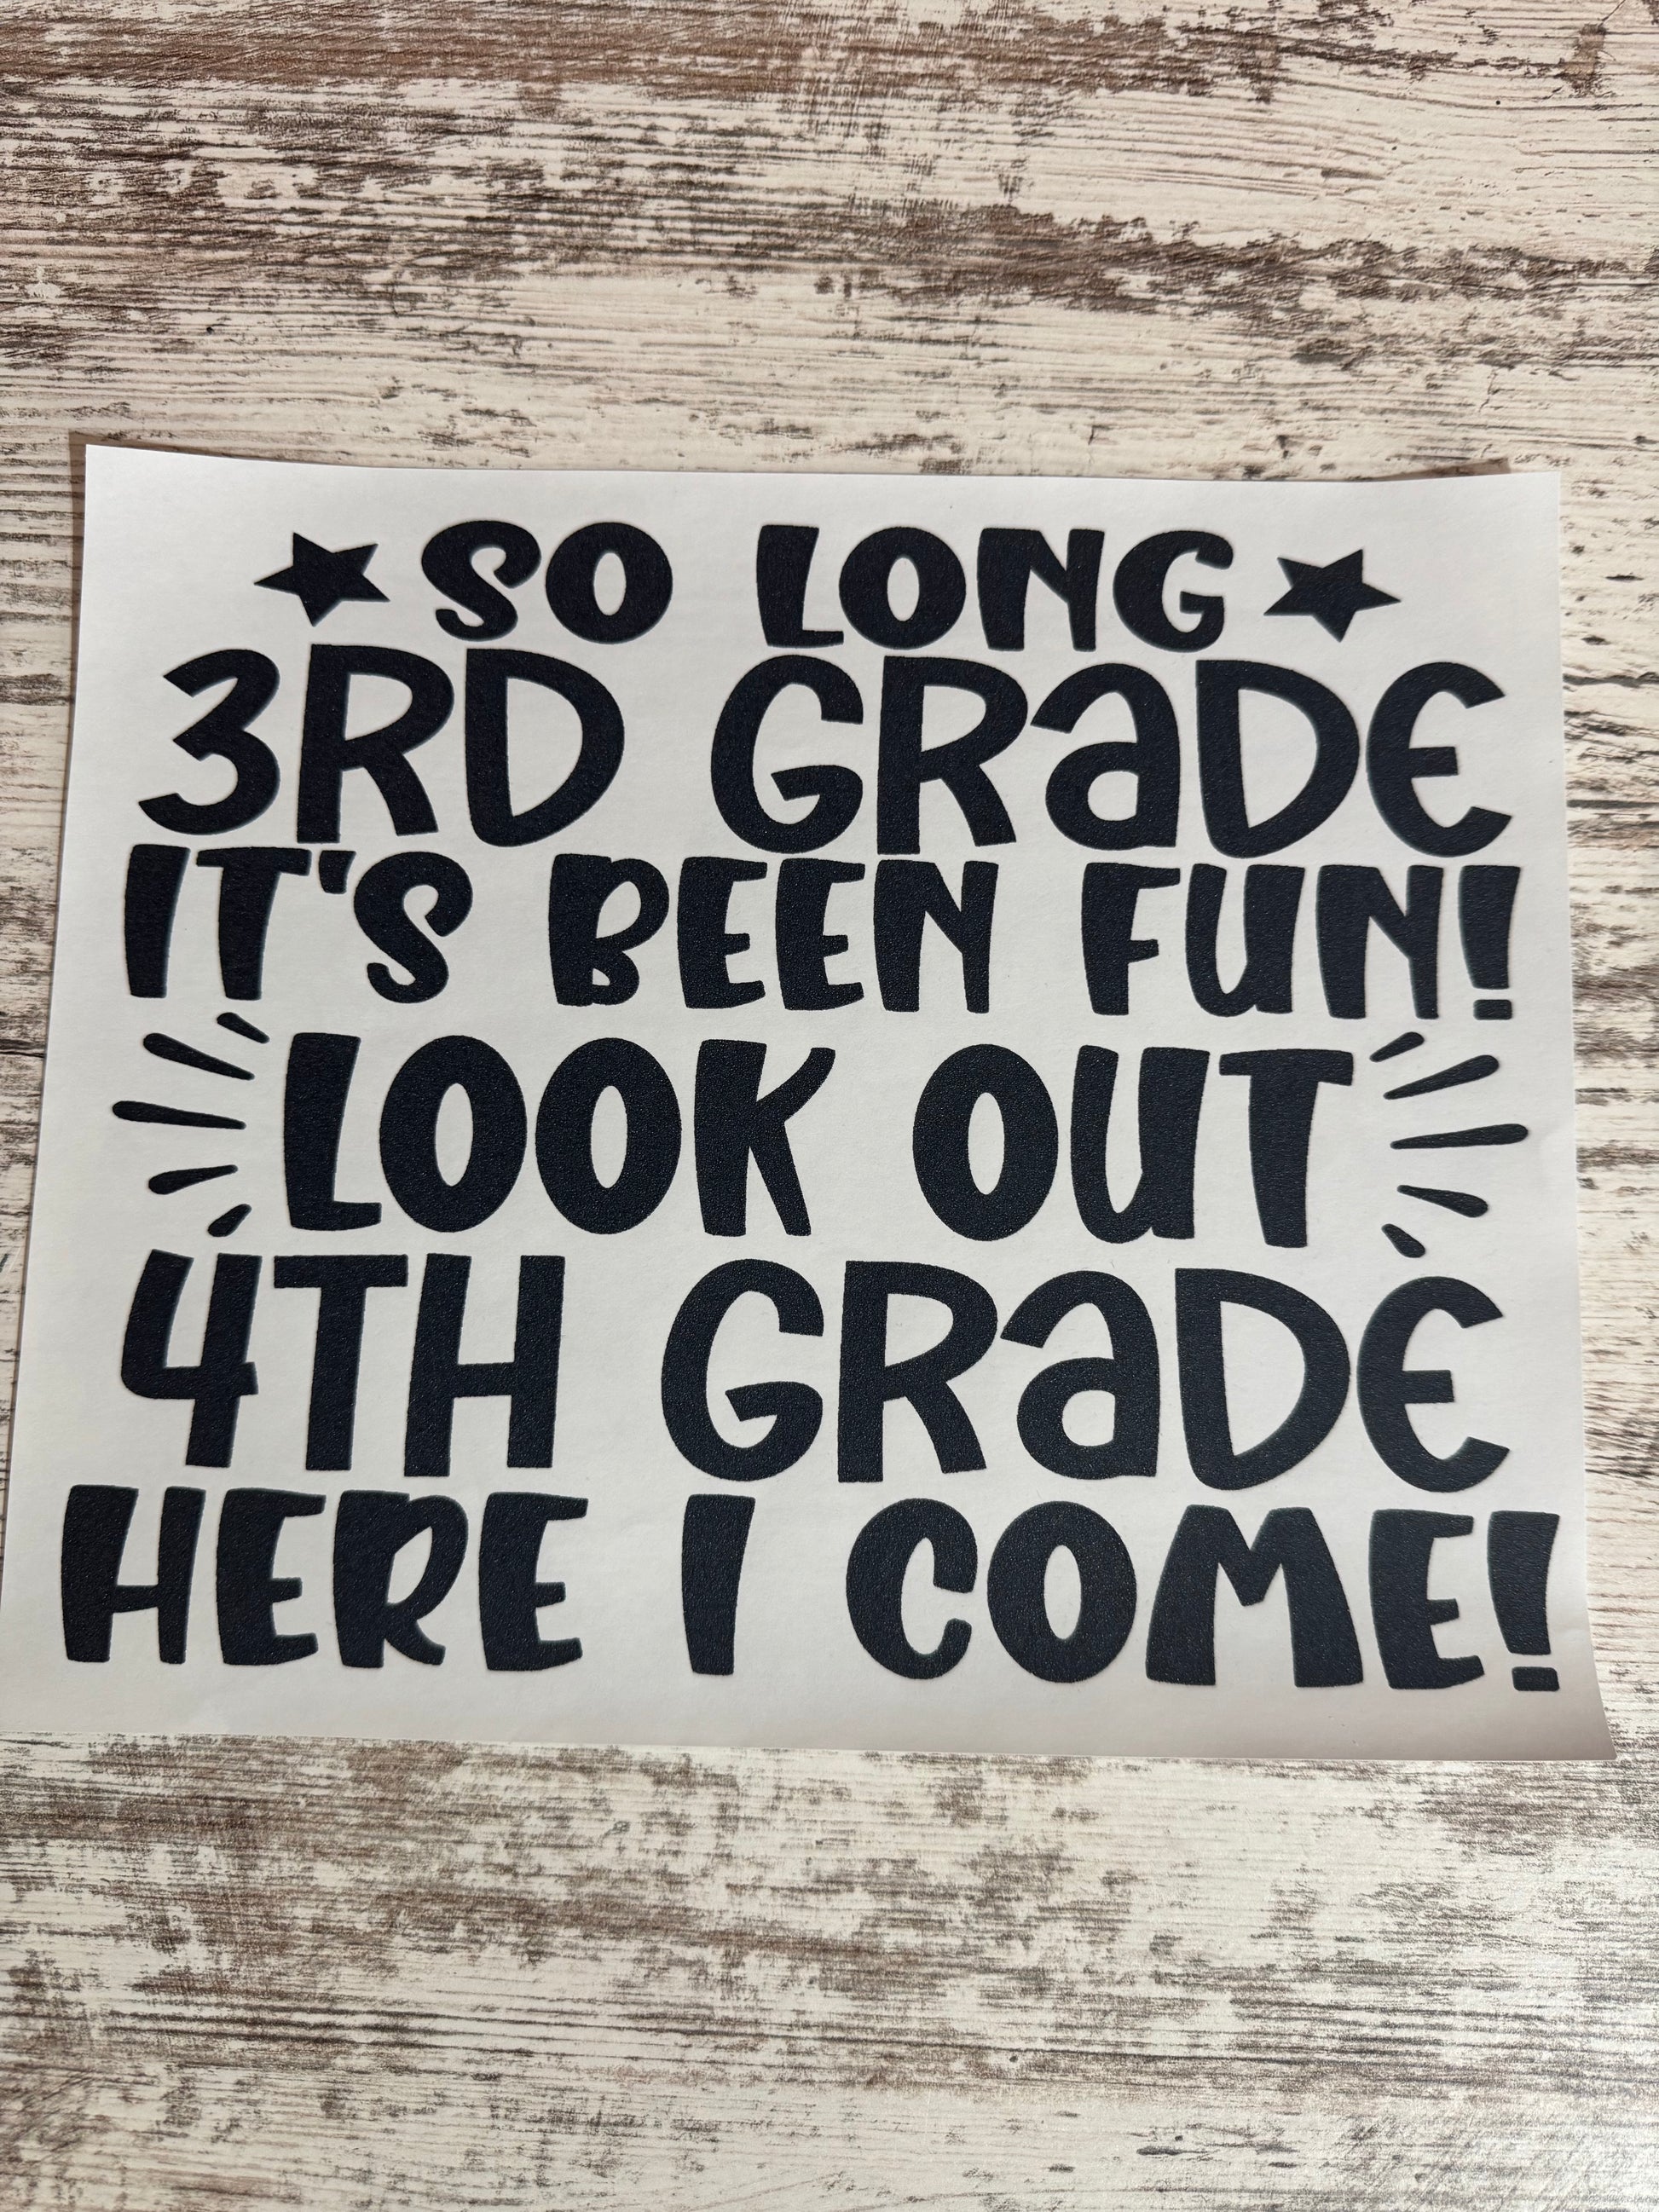 SO LONG
3RD GRADE
IT'S BEEN FUN!
LOOK OUT
4TH GRADE
HERE I COME!